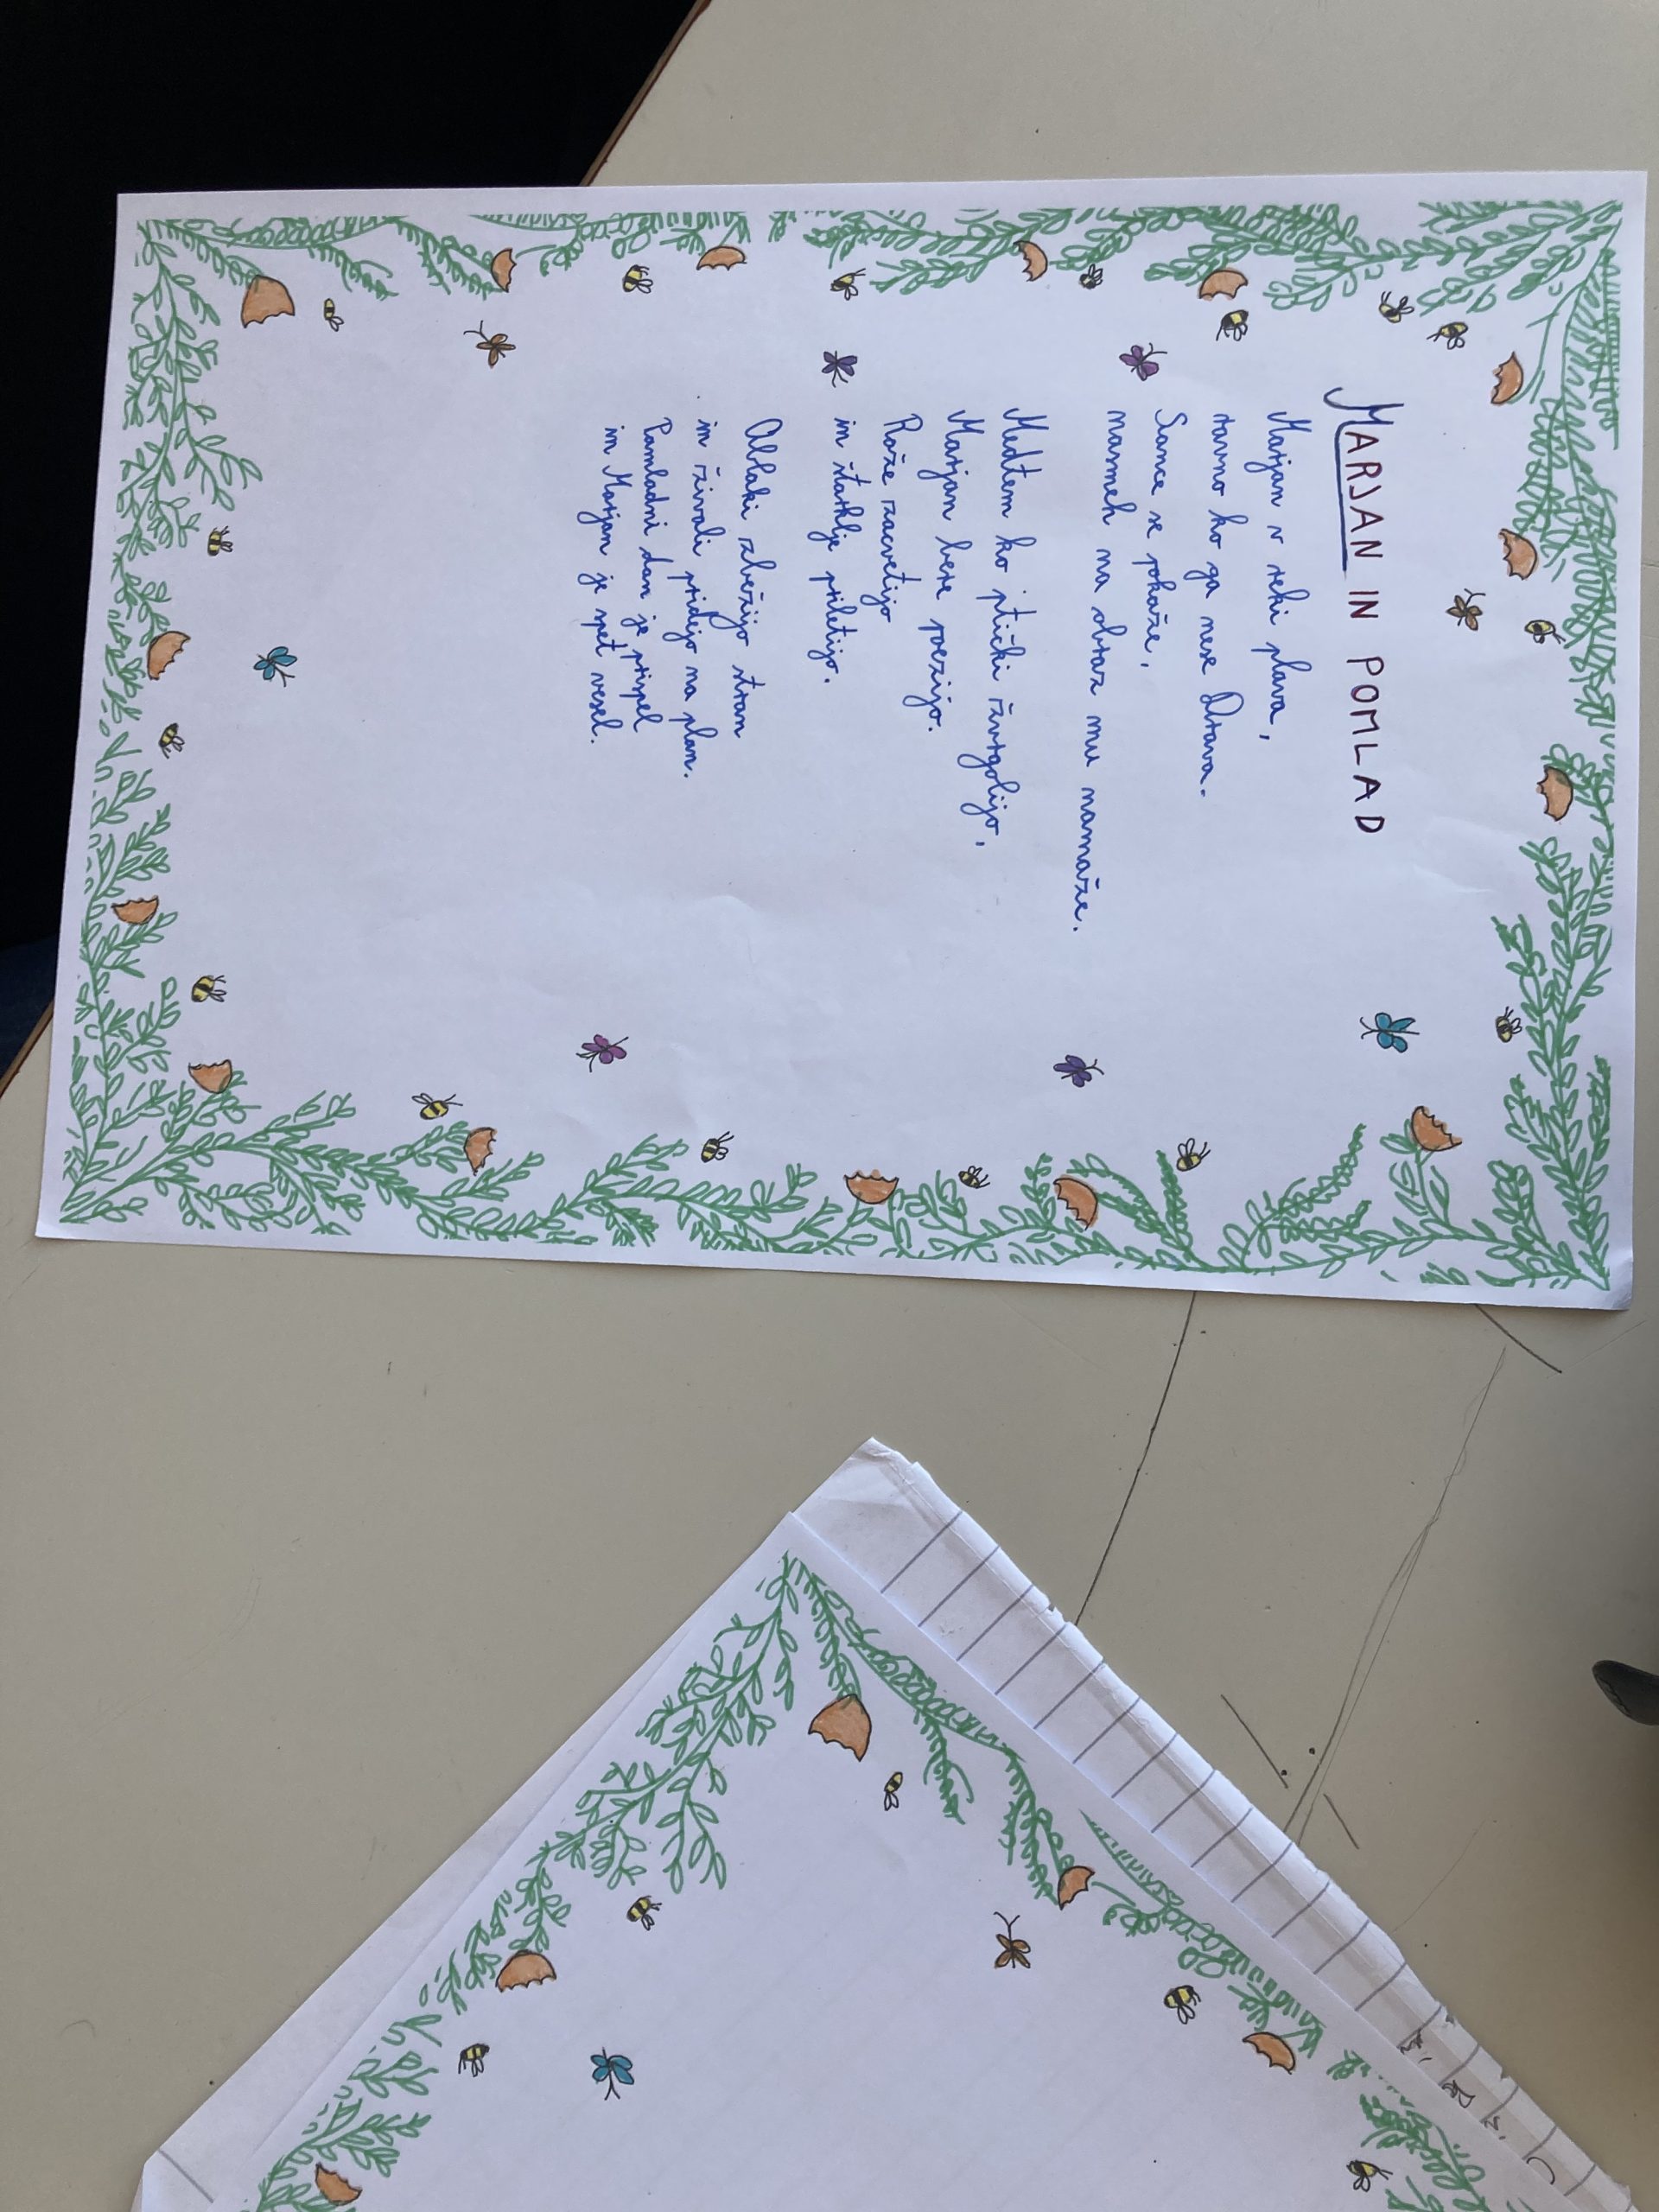 MARJAN IN POMLAD
Marjan v reki plava,
ravno ko ga nese Drava.
Sonce se pokaže,
nasmeh na obraz mu namaže.
Medtem ko ptički žvrgolijo,
Marjan bere poezijo.
Rože zacvetijo
in štorklje priletijo.
Oblaki zbežijo stran
in živali pridejo na plan.
Pomladni dan je prispel
in Marjan je spet vesel.